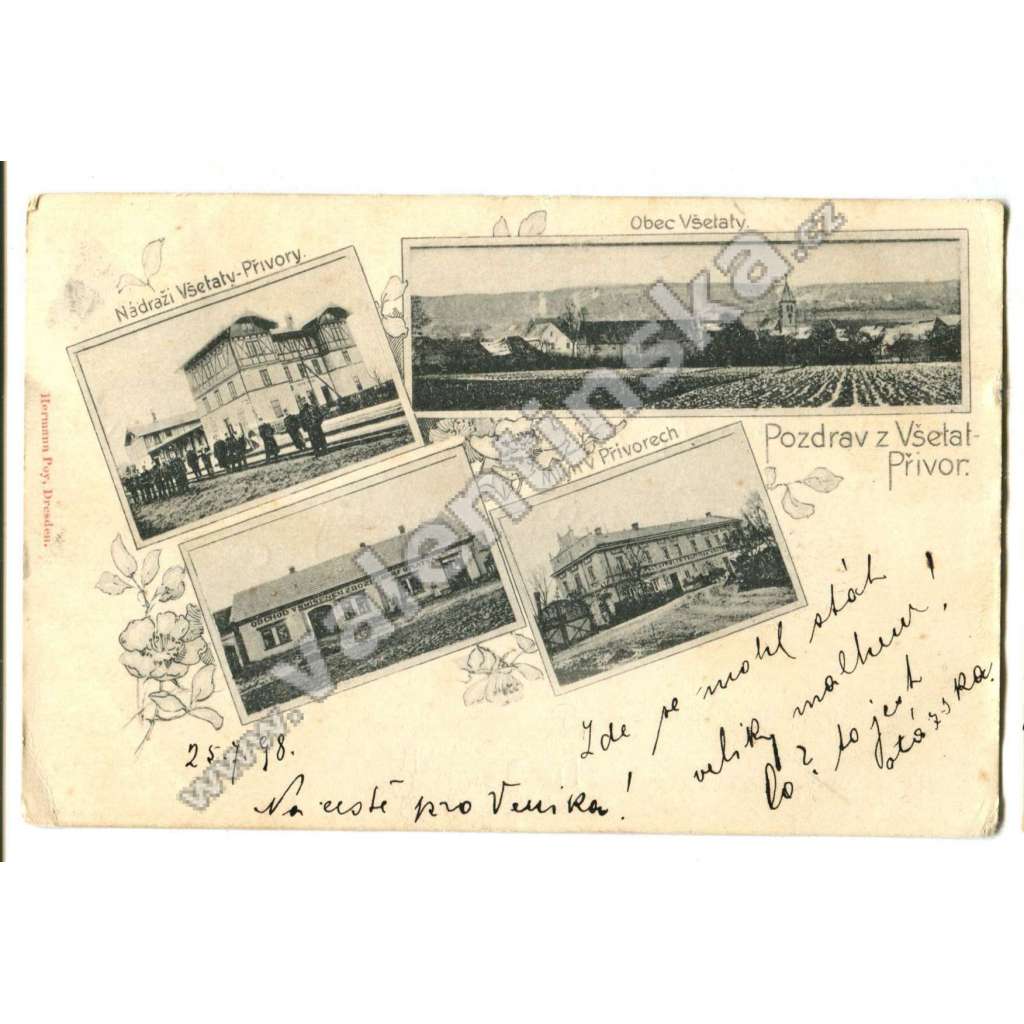 Nádraží Všetaty-Přivory.
Obec Všetaty.
Pozdrav z Všetat-
Přivor.
v Přivorech
OBCHOD
Hermann Poy, Dresden.
25/7 98.
Na cestě pro Venika!
Zde se mohl stát
veliký malheur!
Co? to jest
otázska.
www.valentinska.cz